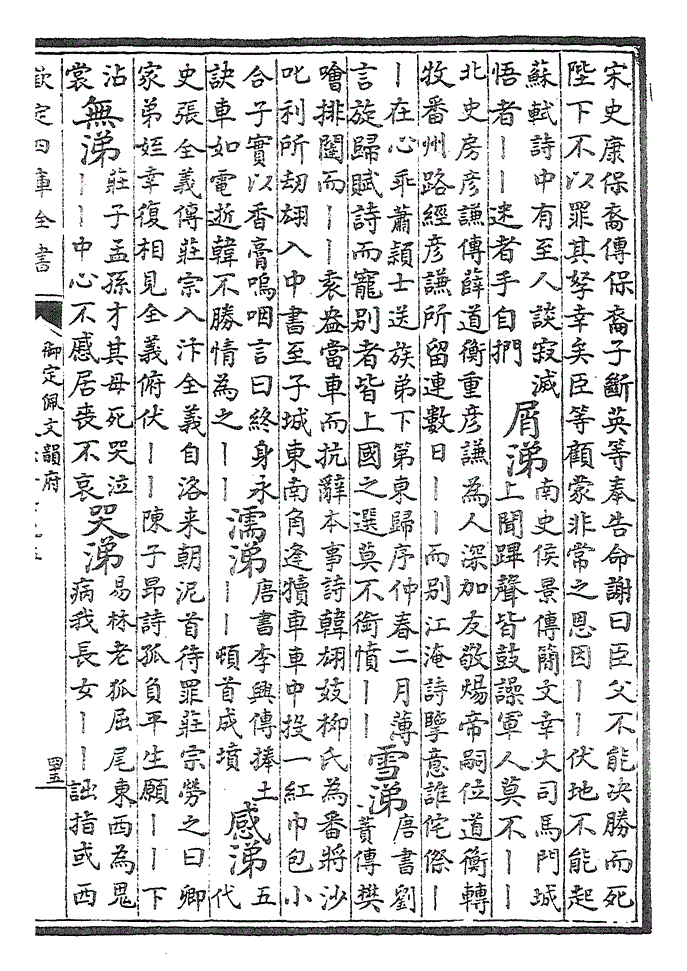 宋史康保裔傳保裔子斷英等奉告命謝曰臣父不能決勝而死
陛下不以罪其孥幸矣臣等顧蒙非常之恩因丨丨伏地不能起
蘇軾詩中有至人談寂滅
悟者丨丨迷者手自捫
屑涕
南史侯景傳簡文幸大司馬門城
上聞蹕聲皆鼓譟軍人莫不丨丨
北史房彥謙傳薛道衡重彥謙為人深加友敬煬帝嗣位道衡轉
牧番州路經彥謙所留連數日丨丨而別江淹詩孽意誰侘傺丨
丨在心乖蕭穎士送族弟下第東歸序仲春二月薄
言旋歸賦詩而寵別者皆上國之選莫不銜憤丨丨
雪涕
唐書劉
蕡傳樊
噲排闥而丨丨袁盎當車而抗辭本事詩韓翃妓柳氏為番將沙
叱利所刼翃入中書至子城東南角逢犢車車中投一紅巾包小
合子實以香膏嗚咽言曰終身永
訣車如電逝韓不勝情為之丨丨
濡涕
唐書李興傳捧土
丨丨頓首成墳
感涕
五
代
史張全義傳莊宗入汴全義自洛来朝泥首待罪莊宗勞之曰卿
家弟姪幸復相見全義俯伏丨丨陳子昂詩孤負平生願丨丨下
沾
裳
無涕
莊子孟孫才其母死哭泣
丨丨中心不慼居喪不哀
哭涕
易林老狐屈尾東西為鬼
病我長女丨丨詘指或西
欽定四庫全書
御定佩文韻府
四五